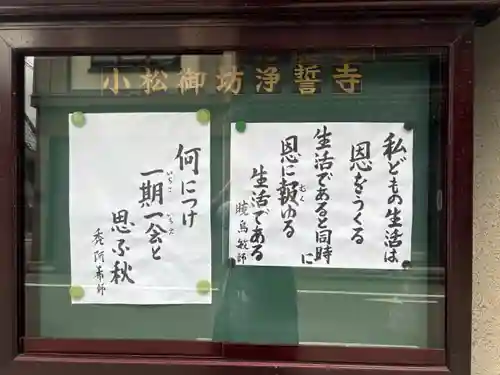 小松御坊浄誓寺
私どもの生活は
恩をうくる
生活であると同時に
恩に報ゆる
むく
生活である
暁烏敏師
何につけ
一期一会と
いちご
いちえ
思ふ秋